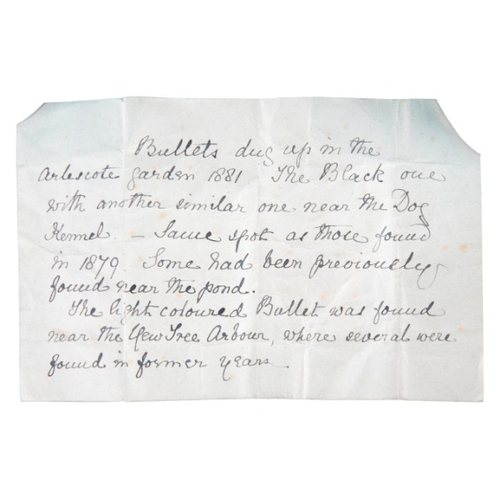 Bullets dug up in the
Arlescote garden 1881 The Black one
with another similar one near the Dog
Kennel. – Same spot as those found
in 1879. Some had been previously
found near the pond.
The light coloured Bullet was found
near the Yew Tree Arbour, where several were
found in former years.